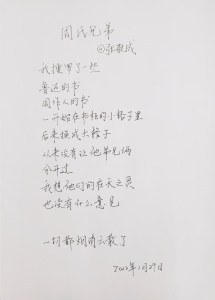 周氏兄弟
◎张敬成
我搜罗了一些
鲁迅的书
周作人的书
一开始在书柜的小格子里
后来换成大格子
从来没有让他弟兄俩
分开过
我想他们的在天之灵
也没有什么意见
一切都烟消云散了
2022年1月29日